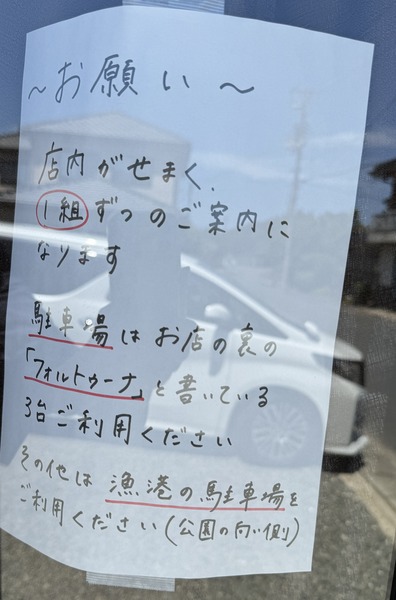 ～お願い～
店内がせまく、
1組ずつのご案内に
なります
駐車場はお店の裏の
「フォルトゥーナ」と書いている
3台ご利用ください
その他は漁港の駐車場を
ご利用ください(公園の向い側)